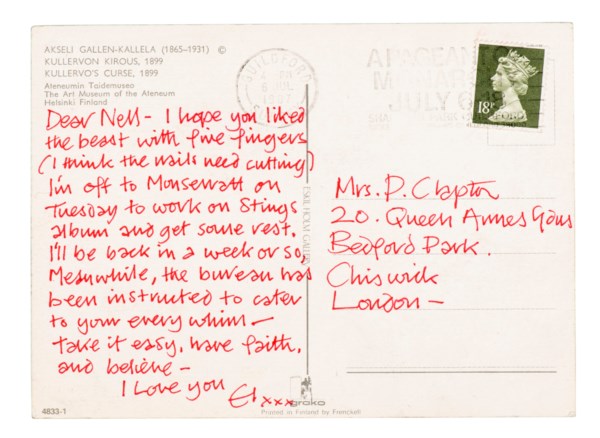 AKSELI GALLEN-KALLELA (1865–1931) ©
KULLERVON KIROUS, 1899
KULLERVO'S CURSE, 1899
Ateneumin Taidemuseo
The Art Museum of the Ateneum
Helsinki Finland
Dear Nell - I hope you liked
the beast with five fingers
(I think the nails need cutting)
I'm off to Monserratt on
Tuesday to work on Stings
album and get some rest.
I'll be back in a week or so,
Meanwhile, the bureau has
been instructed to cater
to your every whim -
take it easy, have faith,
and believe -
I Love you
El xxx
4833-1
groko
Printed in Finland by Frenckell
GUILDFORD
A PAGEANT OF
JULY
18P
Mrs. P. Clapton
20. Queen Annes Gdns
Bedford Park.
Chiswick
London -